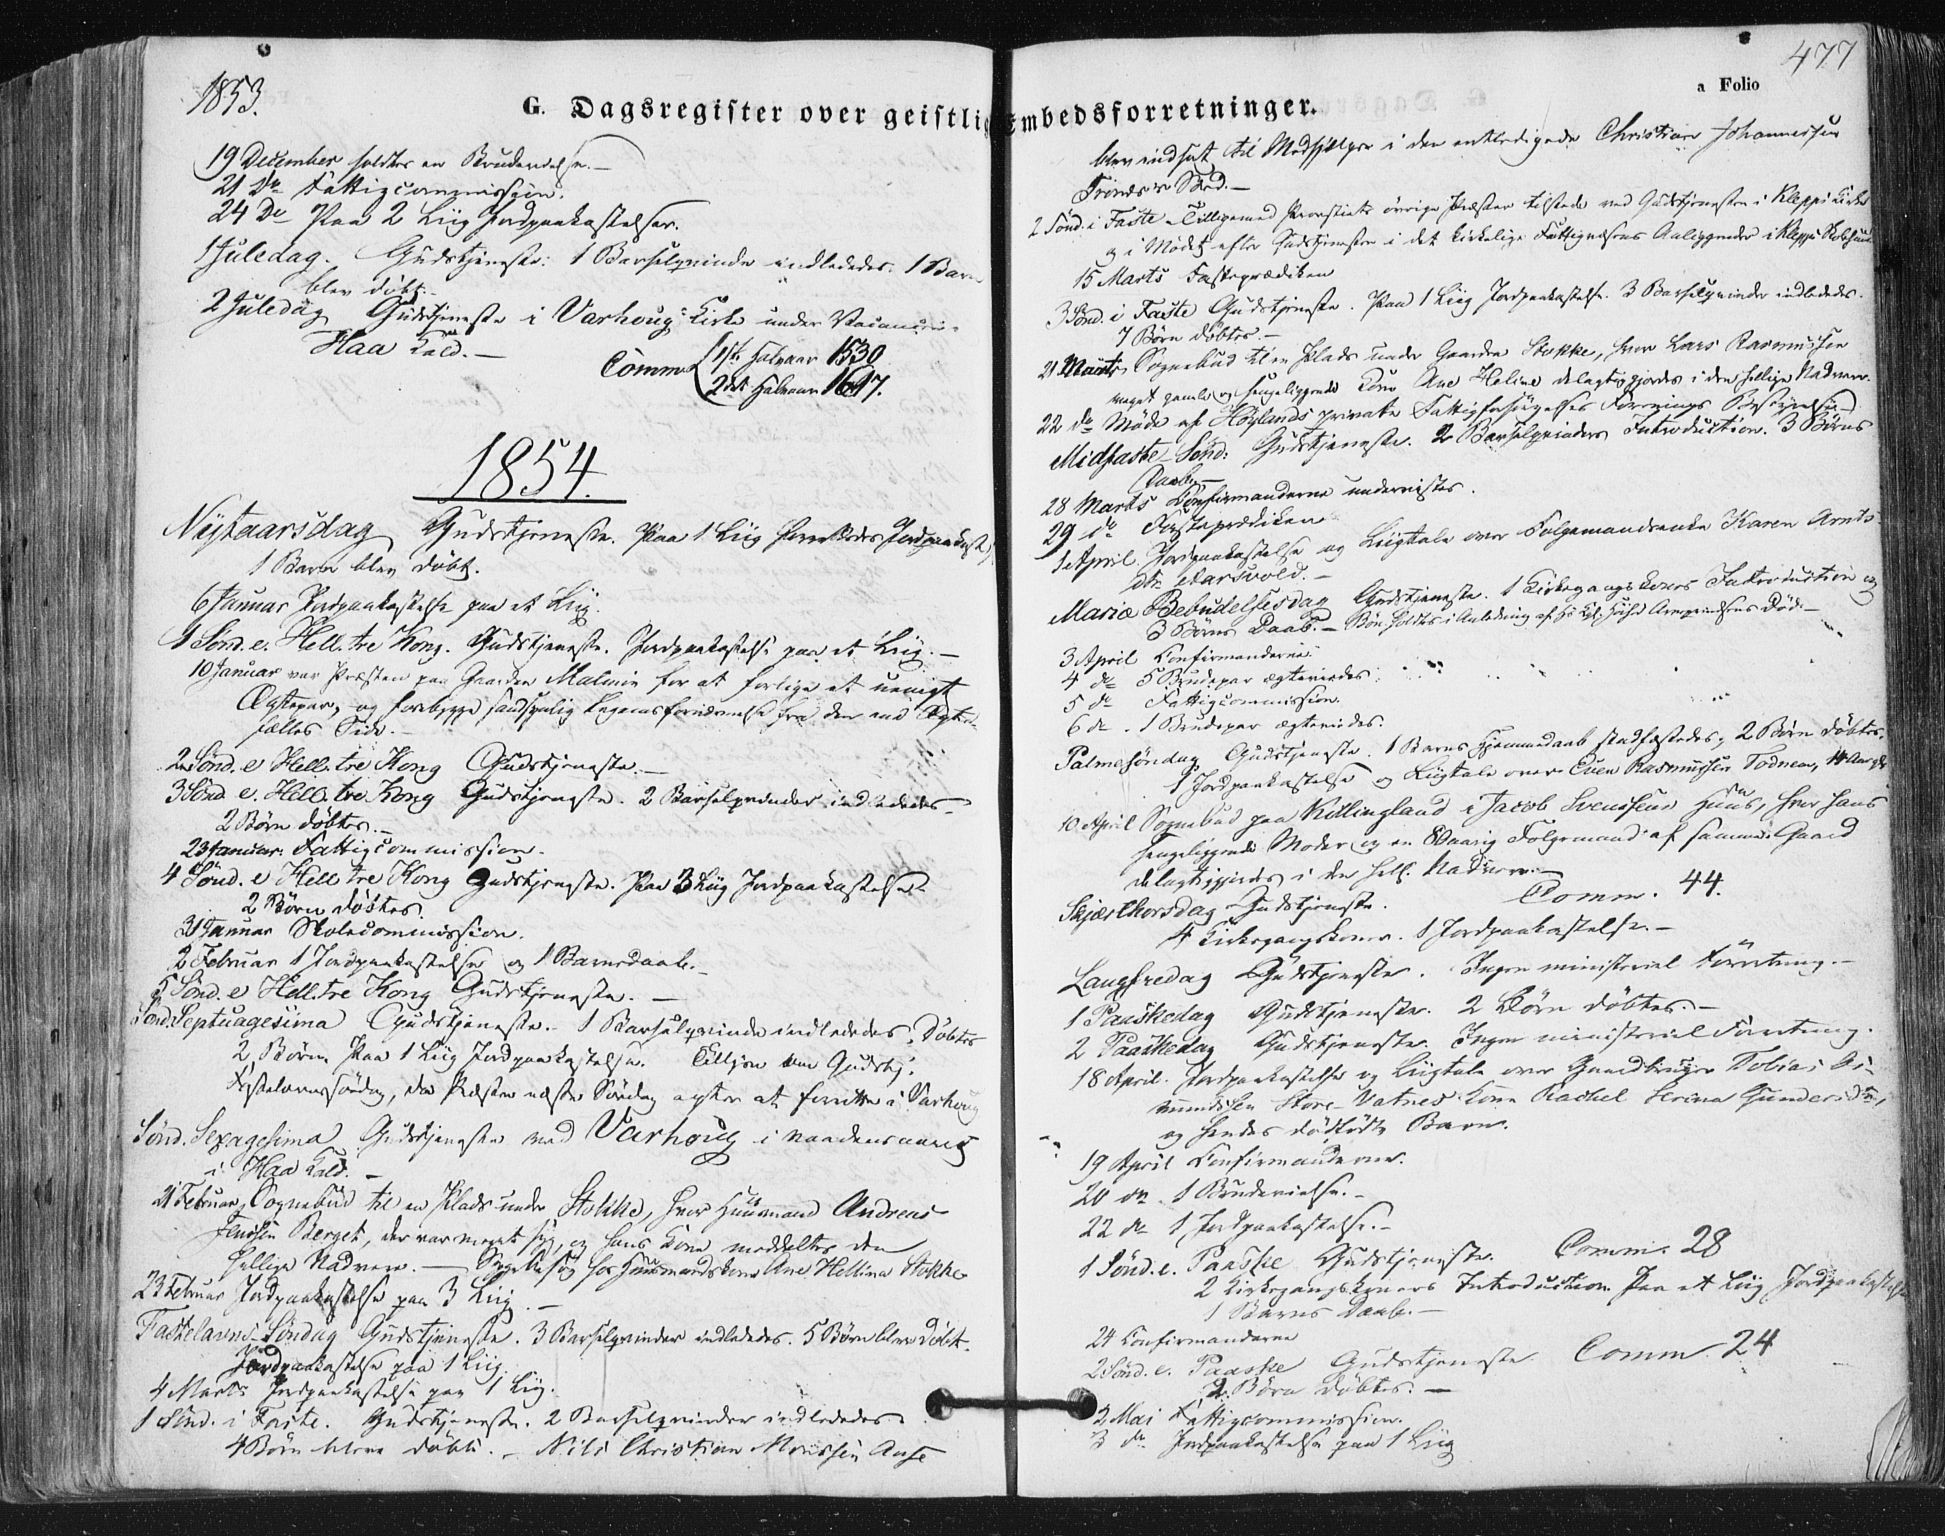 1853.
G. Dagsregister over geistlig
19 December holdtes en Brudevielse.
21 do Fattigcommission.
24 do Paa 2 Liig Jordpaakastelser.
1 Juledag. Gudstjeneste. 1 Barselqvinde indlededes. 1 Barn
blev döbt.
2 Juledag Gudstjeneste i Varhoug Kirke under Vacancen i
Haa Kald. —
Comm. 1ste Halvaar 1530
2det Halvaar 1617.
1854.
Nytaarsdag Gudstjeneste. Paa 1 Liig Jordpaakast.
1 Barn blev döbt.
6 Januar Jordpaakastelse paa et Liig.
1 Sönd. e. Hell. tre Kong. Gudstjeneste. Jordpaakastelse paa et Liig. —
10 Januar var Præsten paa Gaarden Malmin for at forlige et uenigt
Ægtepar, og forebygge
fælles Side. —
2 Sönd. e Hell. tre Kong Gudstjeneste. —
3 Sönd. e. Hell. tre Kong Gudstjeneste. 2 Barselqvinder indlededes
2 Börn döbtes. —
23 Januar. Fattigcommission.
4 Sönd. e Hell. tre Kong Gudstjeneste. Paa 3 Liig Jordpaakastelse.
2 Börn döbtes.
31 Januar Skolecommission.
2 Februar 1 Jordpaakastelse og 1 Barnedaab. —
5 Sönd. e Hell. tre Kong Gudstjeneste. —
Sönd. Septuagesima Gudstjeneste. 1 Barselqvinde indlededes. Döbtes
2 Börn. Paa 1 Liig Jordpaakastelse. Tillyst om Gudstj.
Fastelavnssöndag, da Præsten næste Söndag agter at forrette i Varhoug
Sönd. Sexagesima Gudstjeneste ved Varhoug i Naadensaaret
i Haa Kald. —
21 Februar, Sognebud til en Plads under Stokke, hvor Huusmand Andreas
Berget, der var meget syg, og hans Kone meddeltes den
hellige Nadvere. — Sygebesög hos Huusmandskone Ane Helline Stokke
23 Februar Jordpaakastelse paa 3 Liig. —
Fastelavns Söndag Gudstjeneste. 3 Barselqvinder indlededes. 5 Börn bleve döbt.
Jordpaakastelse paa 1 Liig.
4 Marts Jordpaakastelse paa 1 Liig.
1 Sönd. i Faste. Gudstjeneste. 2 Barselqvinder indlededes
4 Börn bleve döbte. — Nils Christian
477
a Folio
Embedsforretninger.
blev indsat til Medhjelper i den entledigede Christian Johannessen
Sted. —
2 Sönd. i Faste Tilligemed Provstiets övrige Præster tilstede ved Gudstjenesten i Klepps Kirke
og i Mödet efter Gudstjenesten i det kirkelige Fattigvæsens Anliggender i Klepps Skolehuus
15 Marts Fasteprædiken
3 Sönd. i Faste Gudstjeneste. Paa 1 Liig Jordpaakastelse. 3 Barselqvinder indlededes.
7 Börn döbtes. —
21 Marts Sognebud til en Plads under Gaarden Stokke, hvor Lars Rasmussen
meget gamle og sengeliggende Kone Ane Heline delagtiggjordes i den hellige Nadvere.
22 do Möde af Höylands private Fattigforsörgelses Forenings Bestyrelse
Midfaste-Sönd: Gudstjeneste. 2 Barselqvinders Introduction. 3 Börns
Daab. —
28 Marts Confirmanderne undervistes.
29 do Fasteprædiken
1 April Jordpaakastelse og Liigtale over Folgemandsenke Karen Arnts-
dtr Aarsvold. —
Mariæ Bebudelsesdag Gudstjeneste. 1 Kirkegangskones Introduction og
3 Börns Daab. — Bön holdtes i Anledning af Hs Kgl. Höihd Arveprindsens Död. —
3 April Confirmanderne.
4 do 5 Brudepar ægteviedes.
5 do Fattigcommission.
6 do. 1 Brudepar ægteviedes.
Palmesöndag Gudstjeneste. 1 Barns Hjemmedaab stadfæstedes, 2 Börn döbtes.
1 Jordpaakastelse og Liigtale over Even Rasmussen Todnem,
10 April Sognebud paa Kitlingland i Jacob Svendsens Huus, hvor hans
sengeliggende Moder og en 80aarig Folgemand af samme Gaard
delagtiggjordes i den hell. Nadvere. —
Skjærthorsdag Gudstjeneste. Comm. 44.
4 Kirkegangskoner. 1 Jordpaakastelse. —
Langfredag Gudstjeneste. Ingen ministeriel Forretning. —
1 Paaskedag Gudstjeneste. 2 Börn döbtes. —
2 Paaskedag Gudstjeneste. Ingen ministeriel Forretning.
18 April. Jordpaakastelse og Liigtale over Gaardbruger Tobias As-
mundsen Store-Vatnes Kone Rachel Serina Gundersdtr,
og hendes dödfödte Barn.
19 April Confirmanderne.
20 do 1 Brudevielse. —
22 do 1 Jordpaakastelse. —
1 Sönd. e. Paaske Gudstjeneste. Comm. 28
2 Kirkegangskoners Introduction. Paa et Liig Jordpaakastelse
1 Barns Daab. —
24 Confirmanderne
2 Sönd. e. Paaske Gudstjeneste Comm 24
2 Börn döbtes. —
2 Mai Fattigcommission.
3 do Jordpaakastelse paa 1 Liig